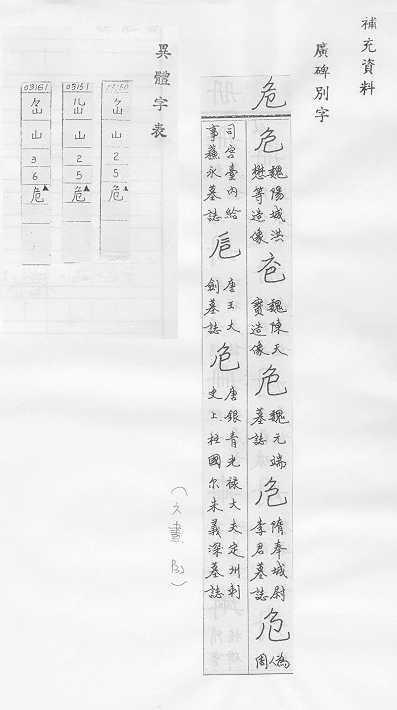 補充資料
廣碑別字
危
危 魏陽城洪懋等造像 魏陳天寶造像 危 魏元端墓誌 危 隋奉城尉李君墓誌 危 偽周
司宮臺內給事蘇永墓誌 唐王大劍墓誌 危 唐銀青光祿大夫定州刺史上柱國尔朱義深墓誌
異體字表
山 2 5 危
03151 山 2 5 危
03161 山 3 6 危